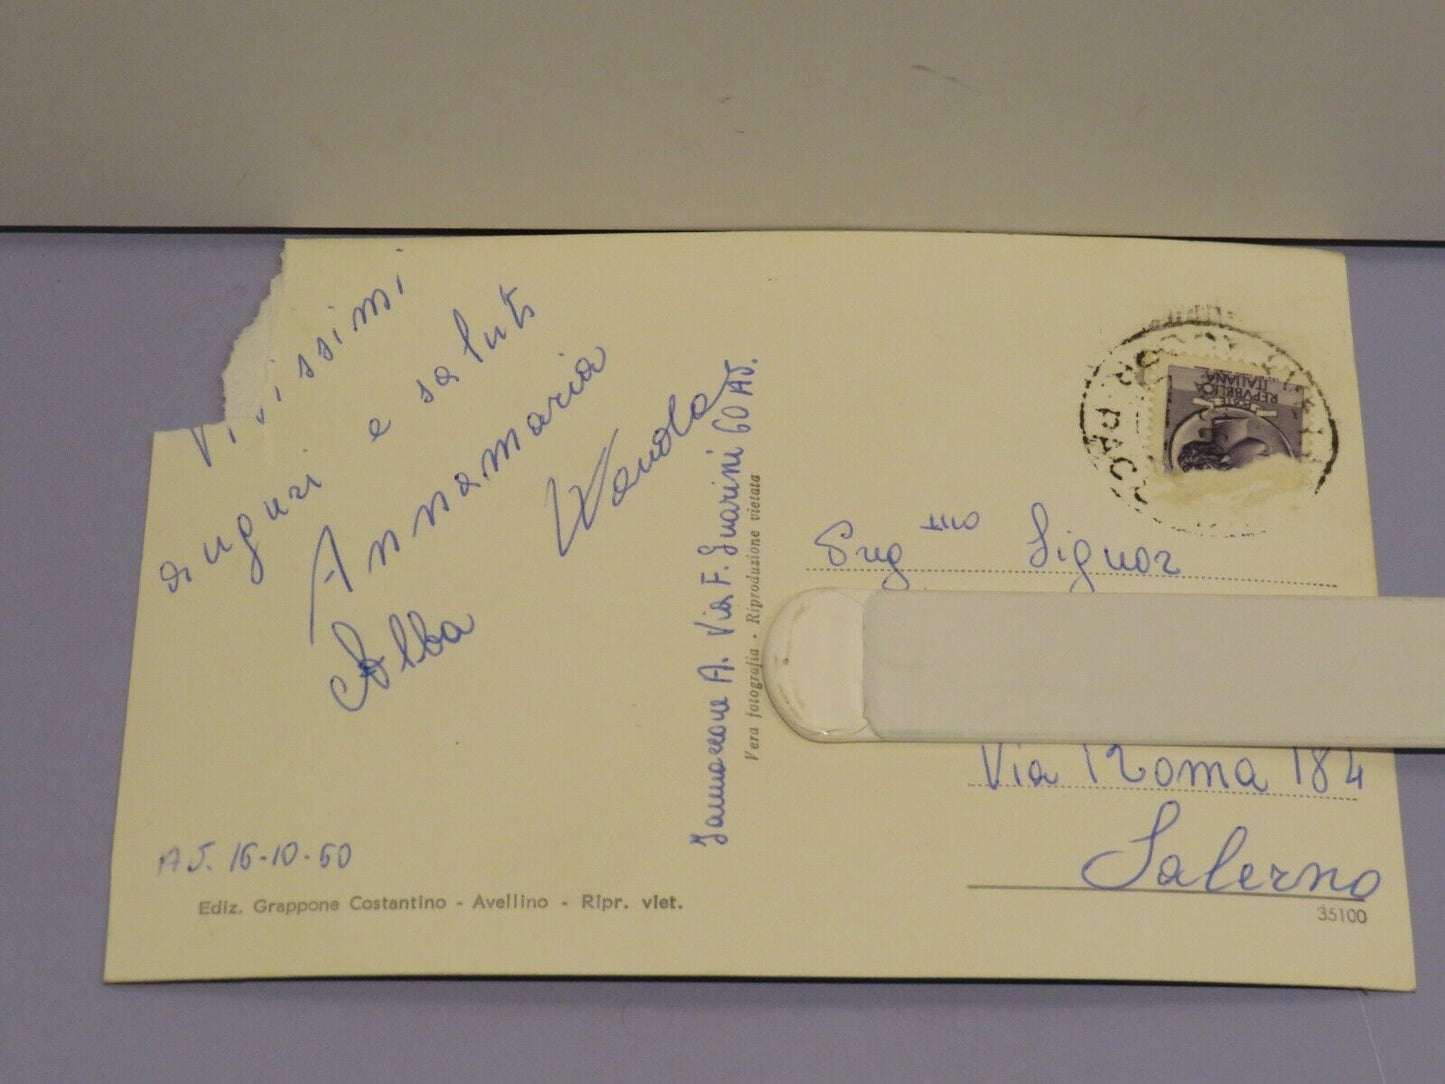 Vivissimi
auguri e saluti
Annamaria
Wanda
Alba
AV. 16-10-60
Ediz. Grappone Costantino - Avellino - Ripr. viet.
Iannaccone A. Via F. Guarini 60 AV.
Vera fotografia - Riproduzione vietata
POSTE
REPVBBLICA
ITALIANA
Preg mo Signor
Via Roma 184
Salerno
35100